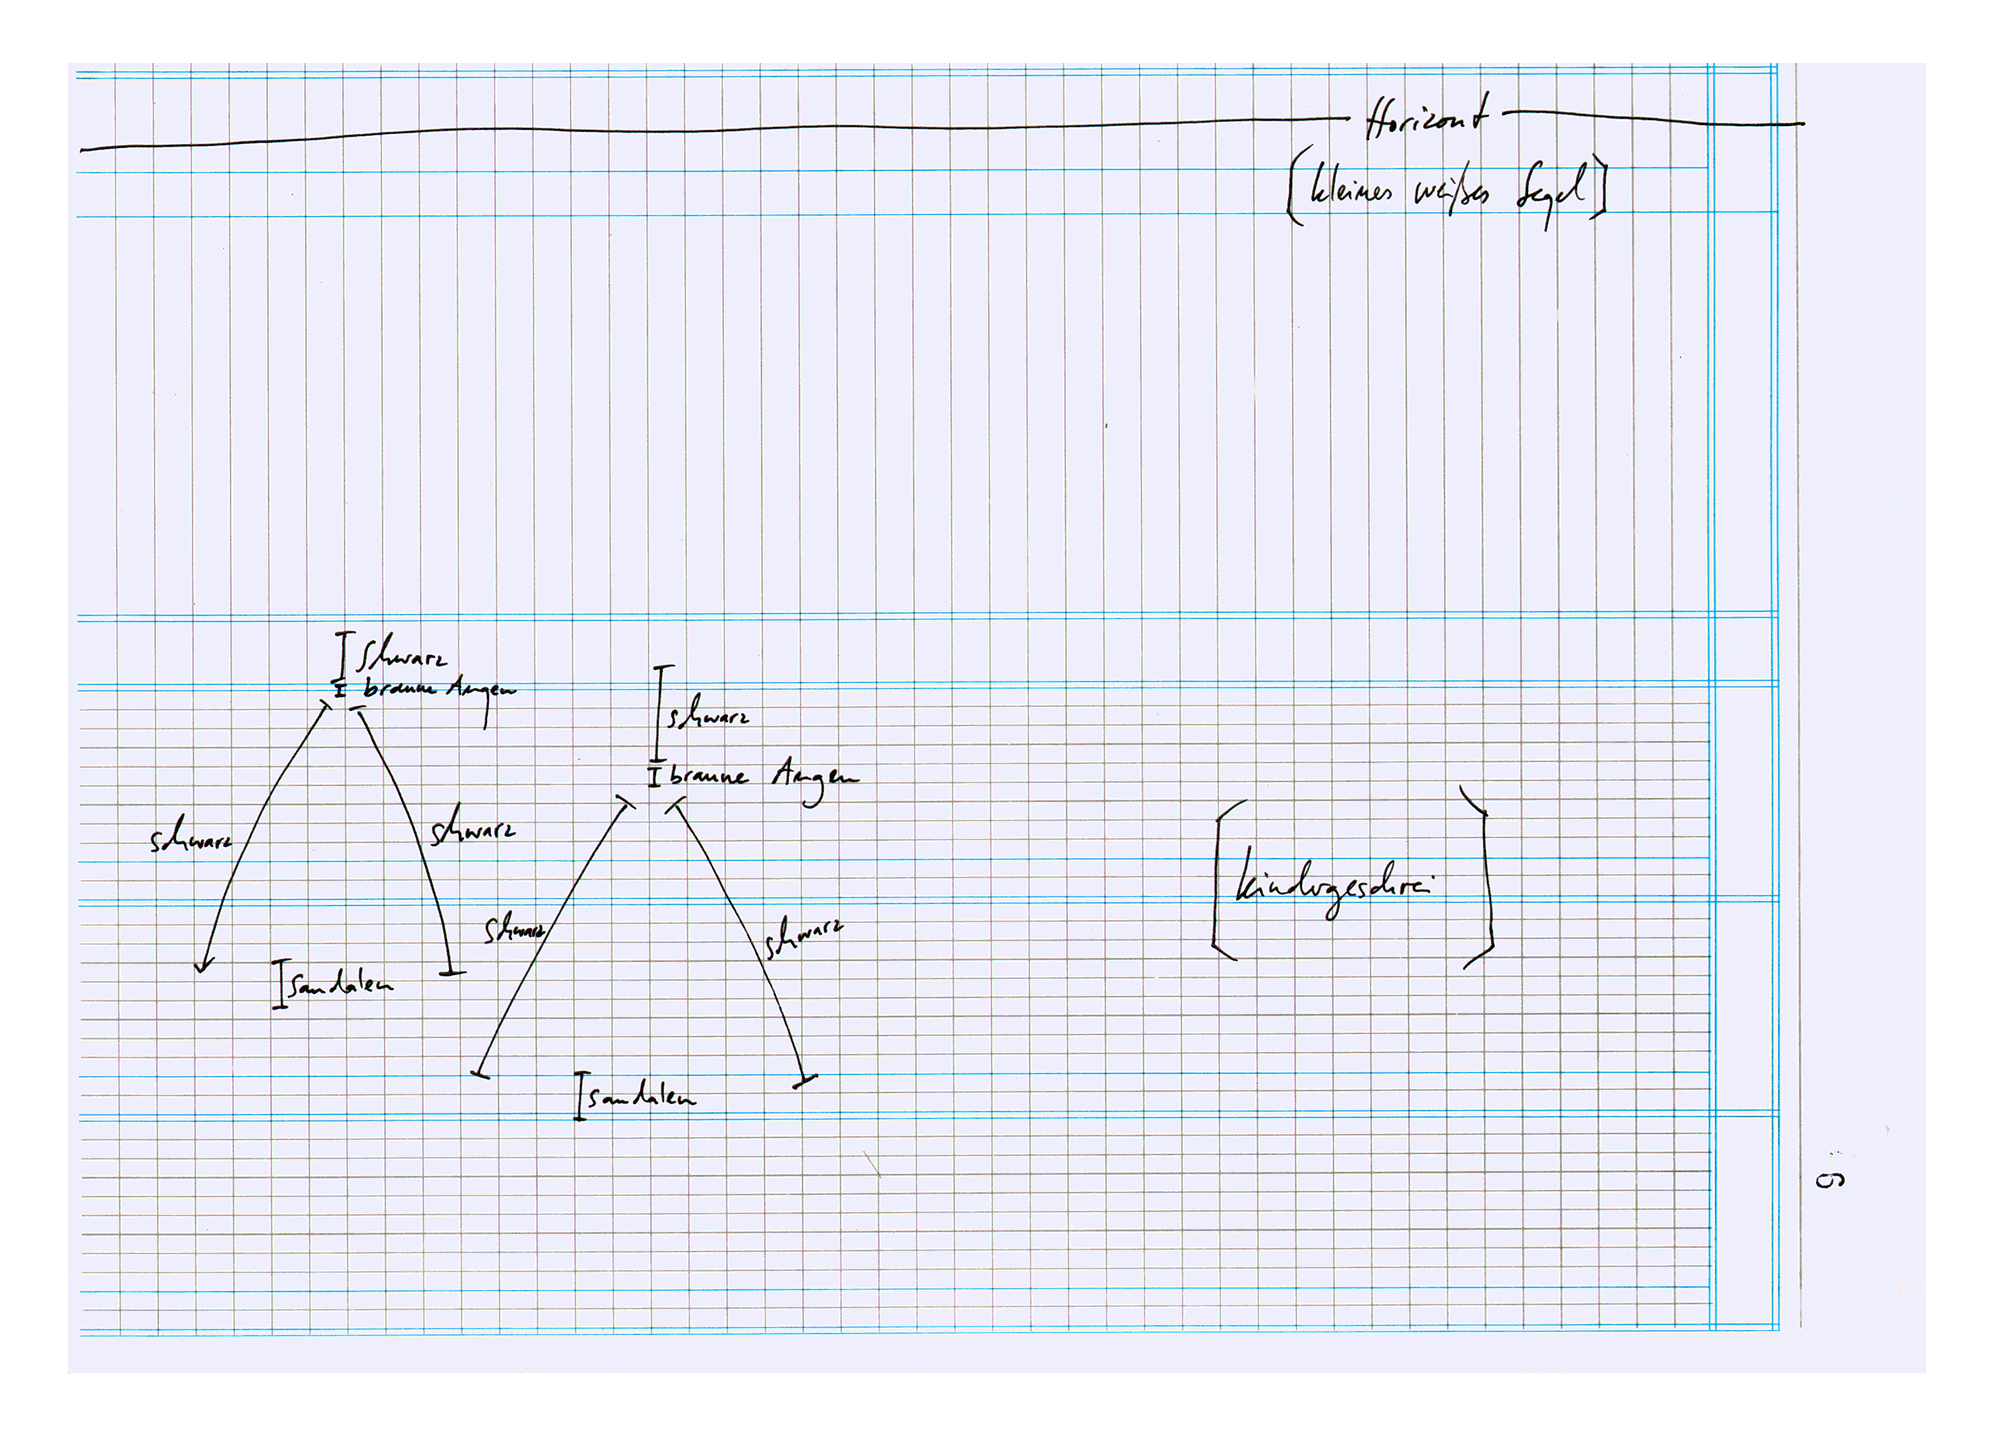 Horizont
[kleines weißes Segel]
schwarz
braune Augen
schwarz
braune Augen
schwarz
schwarz
[Kindergeschrei]
schwarz
schwarz
Sandalen
Sandalen
9